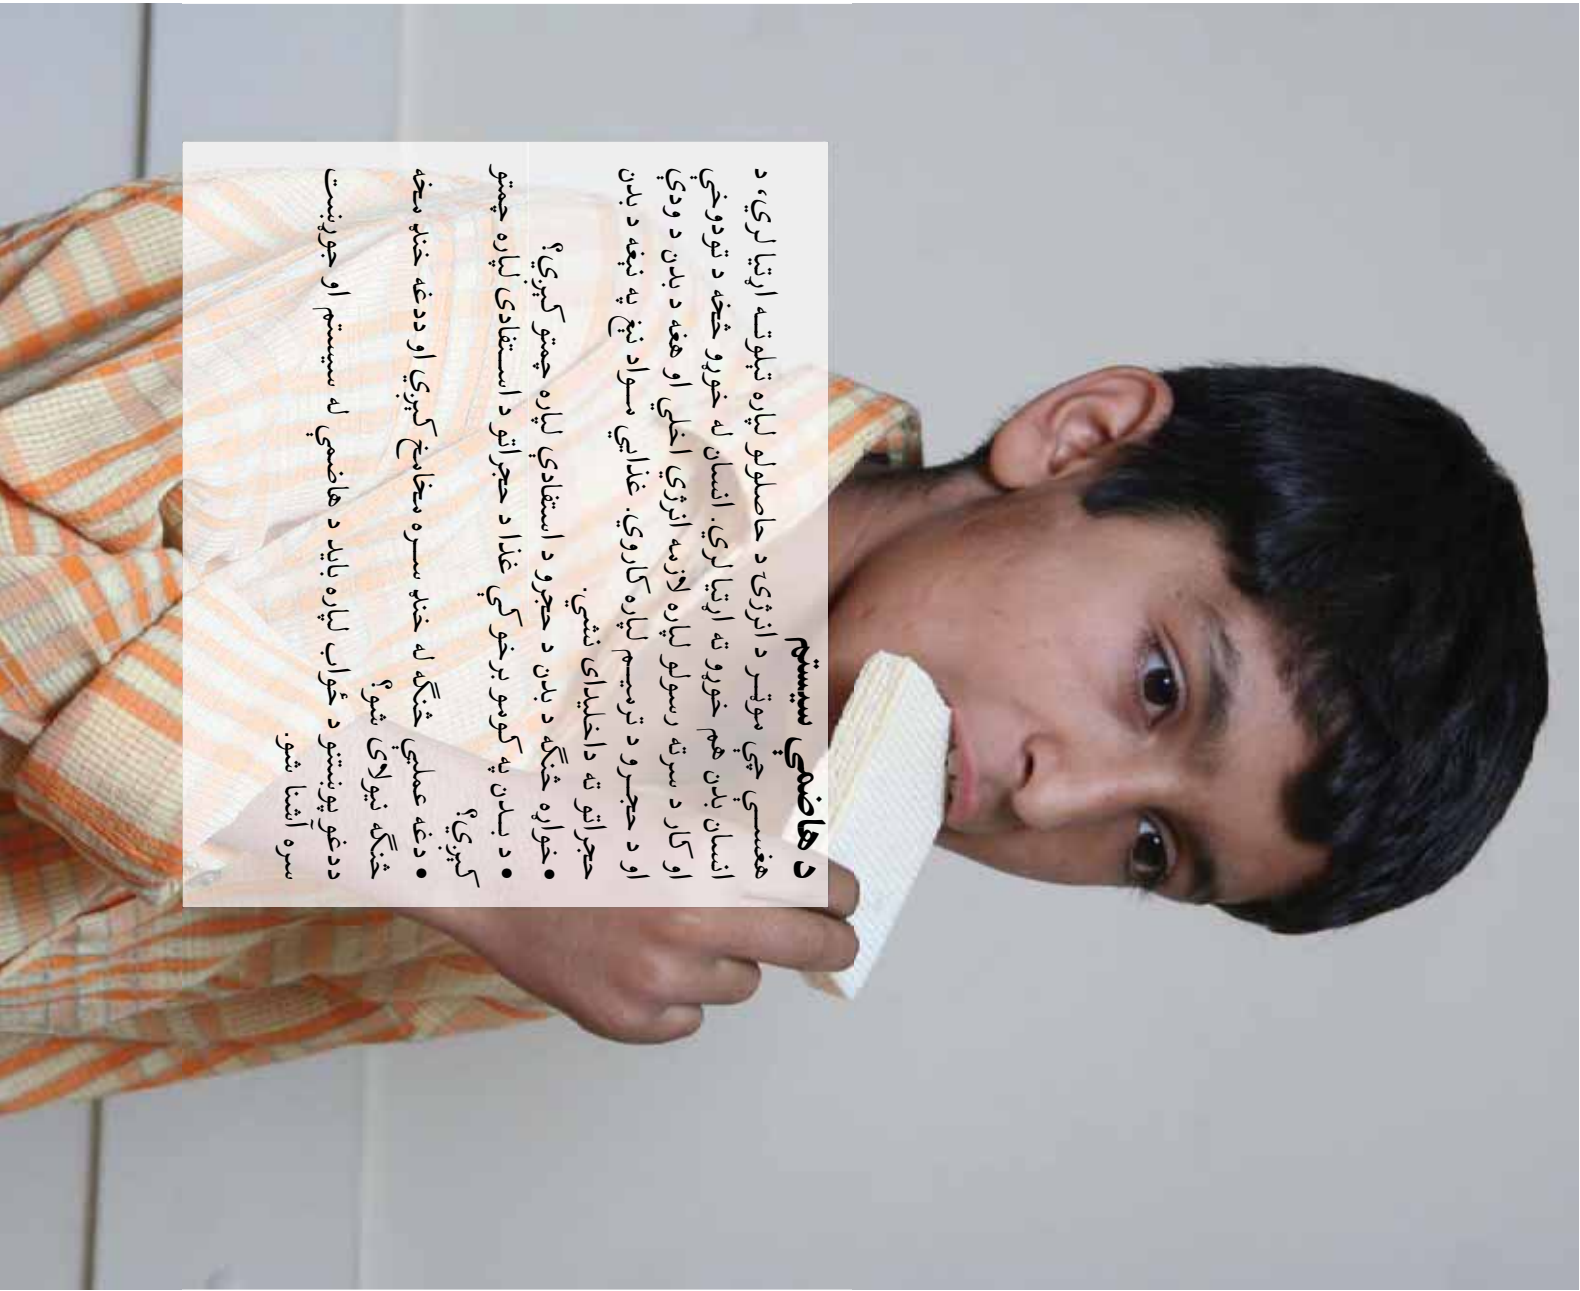 د هاضمې سیستم
هغسـې چې موټـر د انرژۍ د حاصلولو لپاره تیلو تـه اړتیا لري، د
انسان بدن هم خوړو ته اړتیا لري. انسان له خوړو څخه د تودوخې
او کار د سرته رسولو لپاره لازمه انرژي اخلي او هغه د بدن د ودې
او د حجـرو د ترمیـم لپاره کاروي. غذایي مـواد نیغ په نیغه د بدن
حجراتو ته داخلیدای نشي.
• خواړه څنګه د بدن د حجرو د استفادې لپاره چمتو کیږي؟
• د بـدن په کومو برخو کې غذا د حجراتو د اسـتفادې لپاره چمتو
کیږي؟
• دغه عملیې څنګه له خنډ سـره مخامخ کیږي او ددغه خنډ مخه
څنګه نیولای شو؟
ددغو پوښتنو د ځواب لپاره باید د هاضمې له سیستم او جوړښت
سره آشنا شو.